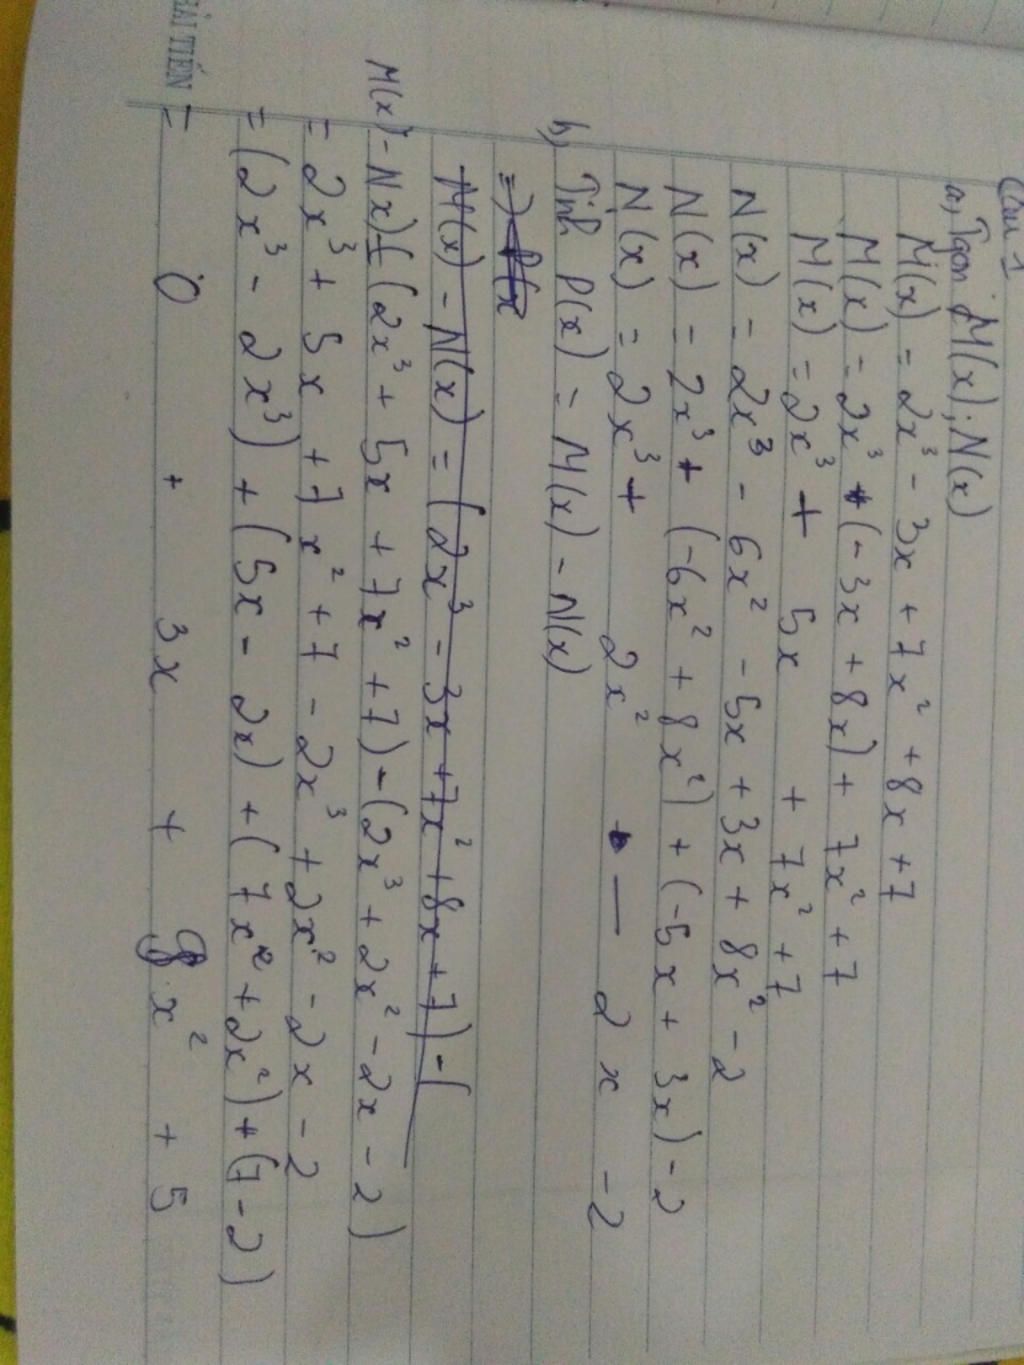 Câu 1
a, Tgọn M(x); N(x)
M(x) = 2x³ - 3x + 7x² + 8x + 7
M(x) = 2x³ + (-3x + 8x) + 7x² + 7
M(x) = 2x³ + 5x + 7x² + 7
N(x) = 2x³ - 6x² - 5x + 3x + 8x² - 2
N(x) = 2x³ + (-6x² + 8x²) + (-5x + 3x) - 2
N(x) = 2x³ + 2x² - 2x - 2
b, Tính P(x) = M(x) - N(x)
=) P(x
M(x) - N(x) = (2x³ - 3x + 7x² + 8x + 7) - (
M(x) - N(x) = (2x³ + 5x + 7x² + 7) - (2x³ + 2x² - 2x - 2)
= 2x³ + 5x + 7x² + 7 - 2x³ + 2x² - 2x - 2
= (2x³ - 2x³) + (5x - 2x) + (7x² + 2x²) + (7 - 2)
= 0 + 3x + x² + 5
HẢI TIẾN